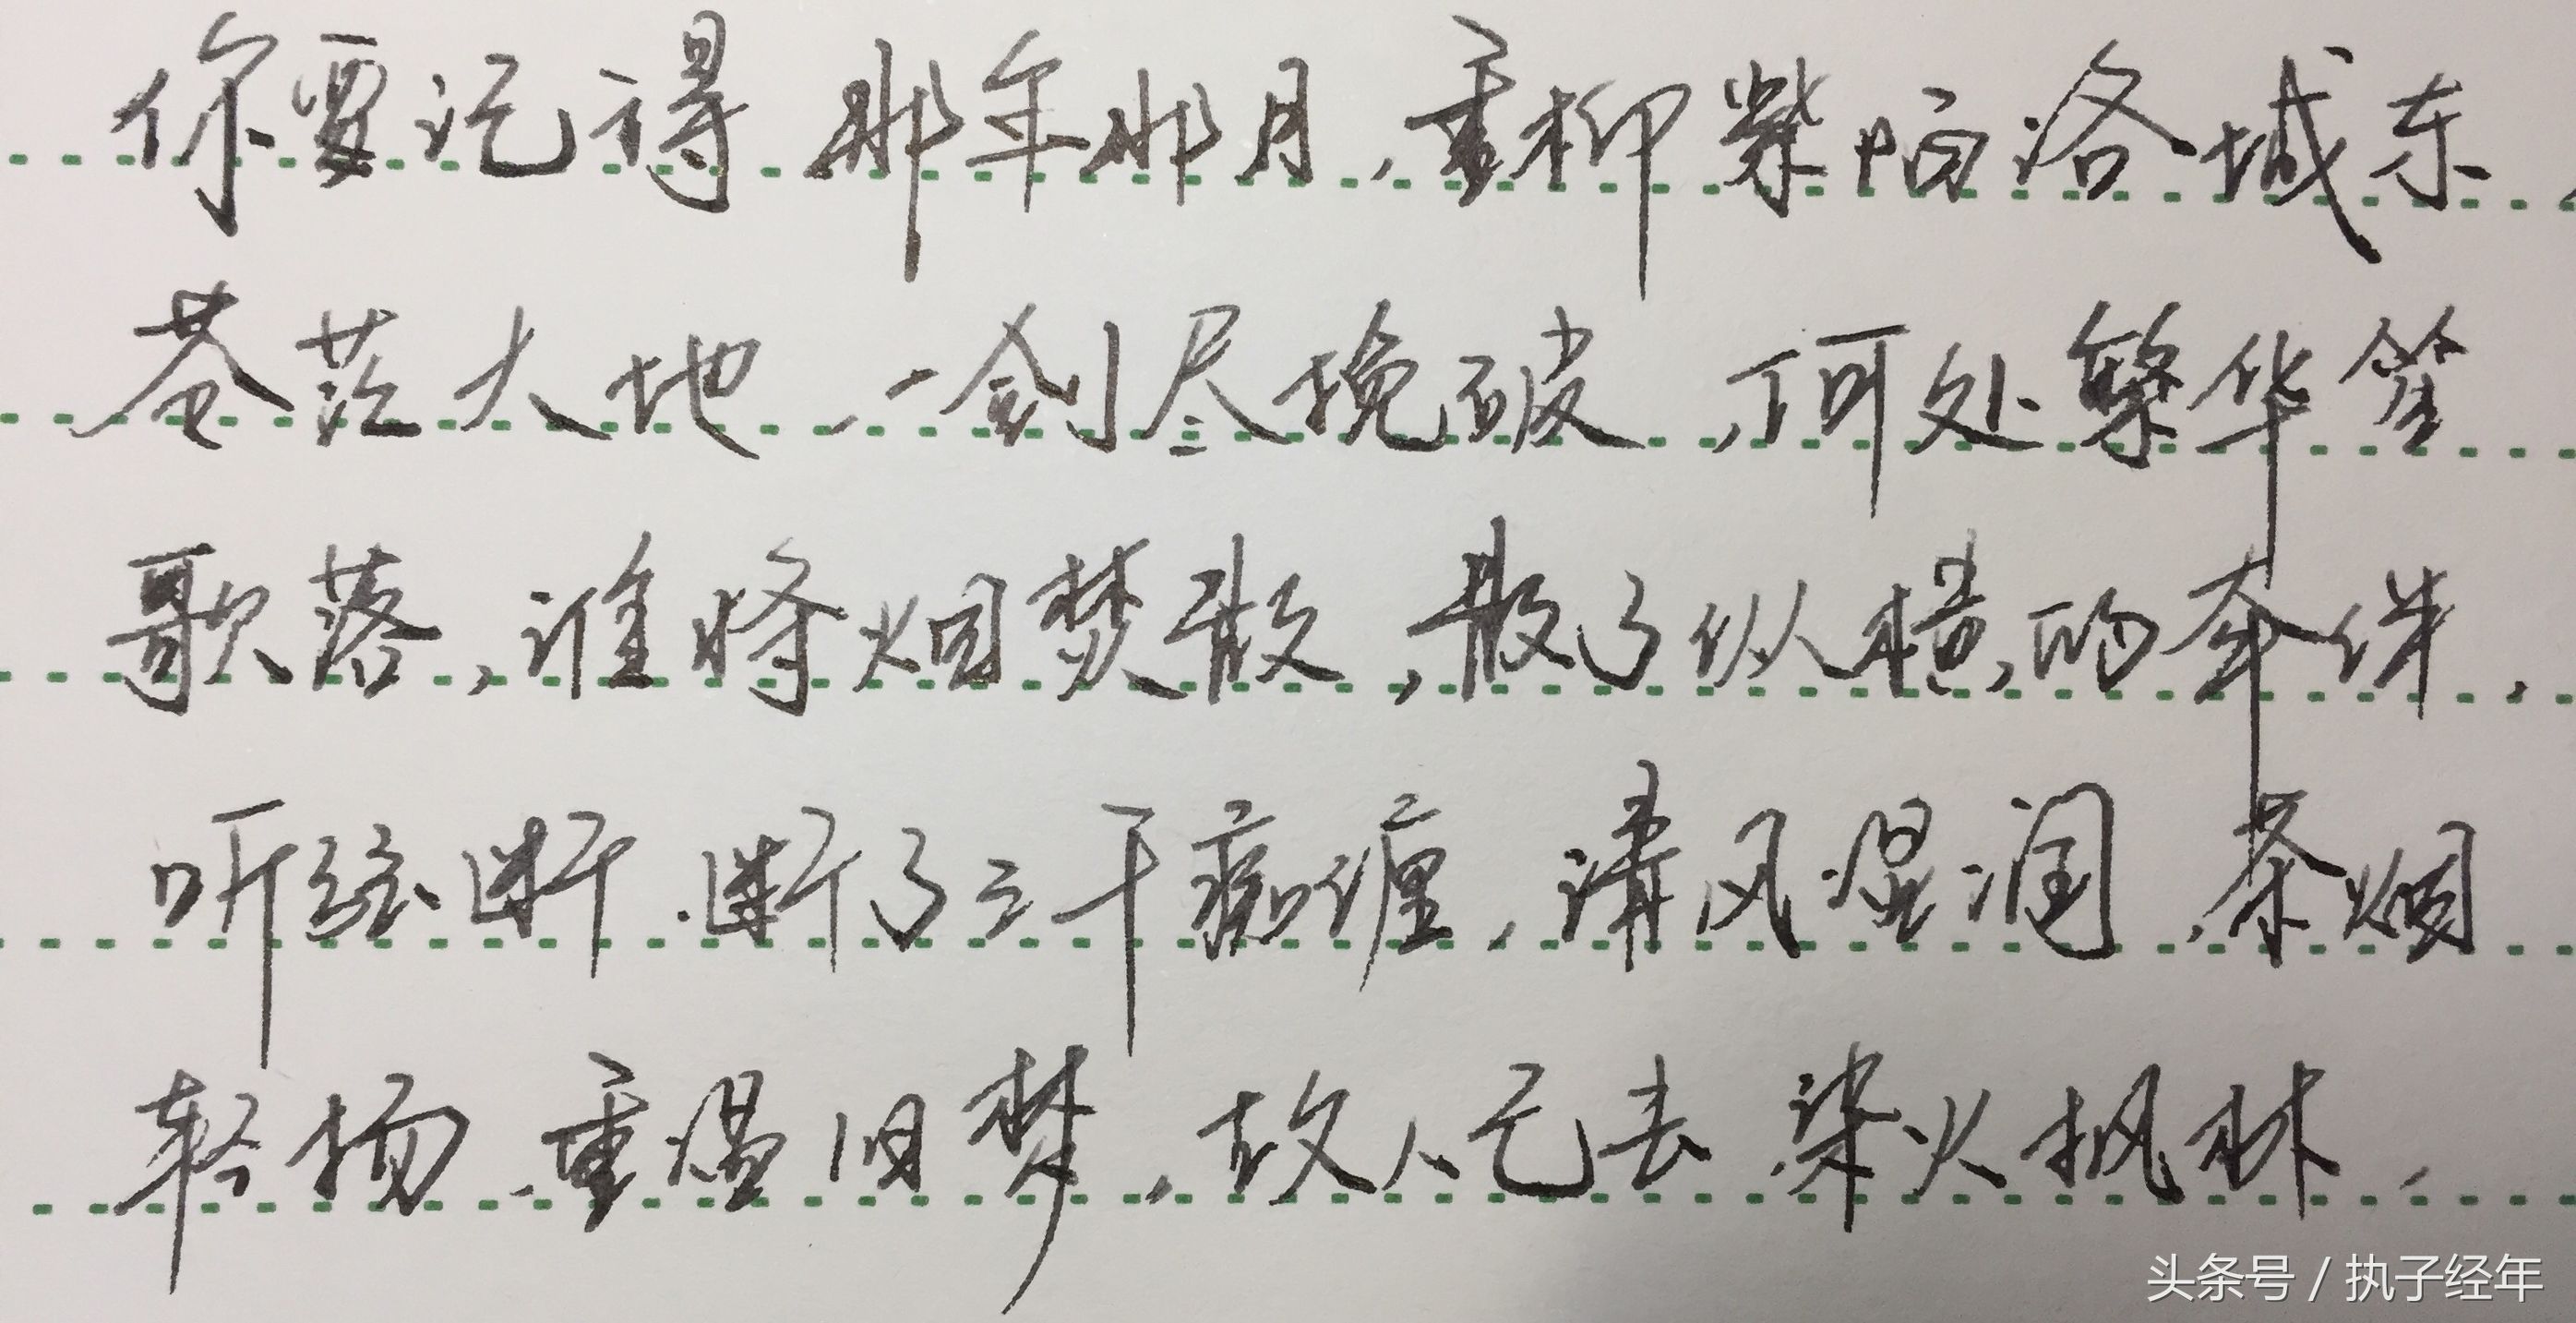 你要记得那年那月，垂柳紫陌洛城东，
苍茫大地，一剑尽挽破，何处繁华笙
歌落，谁将烟焚散，散了纵横的牵绊，
听弦断，断了三千痴缠，清风湿润，茶烟
轻扬，重温旧梦，故人已去，染火枫林，
头条号 / 执子经年